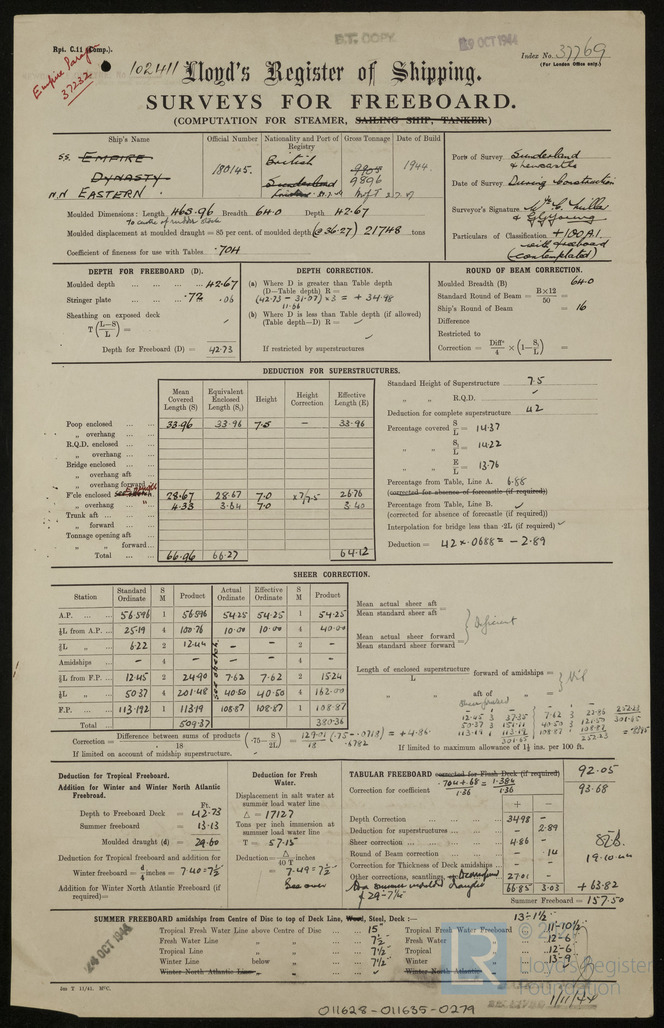 Rpt. C.11 (Comp.).
B.T. COPY.
29 OCT 1944
Index No. 37769
(For London Office only.)
Empire Paragon
37232
102411
Lloyd's Register of Shipping.
SURVEYS FOR FREEBOARD.
(COMPUTATION FOR STEAMER, SAILING SHIP, TANKER.)
Ship's Name
Official Number
Nationality and Port of Registry
Gross Tonnage
Date of Build
S.S. EMPIRE
DYNASTY
N.N EASTERN
180145.
British
Sunderland
9905
9896
1944.
Port of Survey Sunderland
& Newcastle
Date of Survey During Construction
Surveyor's Signature
Particulars of Classification +100 A.1.
with freeboard
(contemplated)
Moulded Dimensions: Length 463.96 Breadth 64.0 Depth 42.67
To centre of rudder stock
Moulded displacement at moulded draught = 85 per cent. of moulded depth (@ 36.27) 21748 tons
Coefficient of fineness for use with Tables .704
DEPTH FOR FREEBOARD (D).
Moulded depth 42.67
Stringer plate .72 .06
Sheathing on exposed deck
T (L-S/L) =
Depth for Freeboard (D) = 42.73
DEPTH CORRECTION.
(a) Where D is greater than Table depth
(D-Table depth) R =
(42.73 - 31.07) × 3 = + 34.98
11.66
(b) Where D is less than Table depth (if allowed)
(Table depth-D) R =
If restricted by superstructures
ROUND OF BEAM CORRECTION.
Moulded Breadth (B) 64.0
Standard Round of Beam = B×12/50 =
Ship's Round of Beam = 16
Difference
Restricted to
Correction = Diff/4 × (1 - S₁/L) =
DEDUCTION FOR SUPERSTRUCTURES.
Mean Covered Length (S)
Equivalent Enclosed Length (S₁)
Height
Height Correction
Effective Length (E)
Poop enclosed 33.96 33.96 7.5 - 33.96
„ overhang
R.Q.D. enclosed
„ overhang
Bridge enclosed
„ overhang aft
„ overhang forward
F'cle enclosed 28.67 28.67 7.0 ×7/7.5 26.76
„ overhang 4.33 3.64 7.0 3.40
Trunk aft
„ forward
Tonnage opening aft
„ „ forward
Total 66.96 66.27 64.12
Standard Height of Superstructure 7.5
„ „ R.Q.D.
Deduction for complete superstructure 42
Percentage covered S/L = 14.37
„ „ S₁/L = 14.22
„ „ E/L = 13.76
Percentage from Table, Line A. 6.88
(corrected for absence of forecastle (if required))
Percentage from Table, Line B.
(corrected for absence of forecastle (if required))
Interpolation for bridge less than .2L (if required)
Deduction = 42 × .0688 = - 2.89
SHEER CORRECTION.
Station
Standard Ordinate
S M
Product
Actual Ordinate
Effective Ordinate
S M
Product
A.P. 56.596 1 56.596 54.25 54.25 1 54.25
⅛L from A.P. 25.19 4 100.76 10.00 10.00 4 40.00
¼L „ 6.22 2 12.44 - - 2 -
Amidships - 4 - - - 4 -
¼L from F.P. 12.45 2 24.90 7.62 7.62 2 15.24
⅛L „ 50.37 4 201.48 40.50 40.50 4 162.00
F.P. 113.192 1 113.19 108.87 108.87 1 108.87
Total 509.37 380.36
see sketch
Mean actual sheer aft
Mean standard sheer aft =
Mean actual sheer forward
Mean standard sheer forward =
Deficient
Length of enclosed superstructure
L
forward of amidships =
„ aft of „ =
Nil
12.45 3 37.35
50.37 3 151.11
113.19 1 113.19
301.65
7.62 3 22.86
40.50 3 121.50
108.87 1 108.87
253.23
Correction = Difference between sums of products / 18 (.75 - S/2L) = 129.01/18 (.75 - .0718) = + 4.86
.6782
If limited on account of midship superstructure.
If limited to maximum allowance of 1½ ins. per 100 ft.
Deduction for Tropical Freeboard.
Addition for Winter and Winter North Atlantic Freeboard.
Ft.
Depth to Freeboard Deck = 42.73
Summer freeboard = 13.13
Moulded draught (d) = 29.60
Deduction for Tropical freeboard and addition for
Winter freeboard = d/4 inches = 7.40 = 7½
Addition for Winter North Atlantic Freeboard (if required) =
Deduction for Fresh Water.
Displacement in salt water at summer load water line
△ = 17127
Tons per inch immersion at summer load water line
T = 57.15
Deduction = △/40 T inches
= 7.49 = 7½
See over
TABULAR FREEBOARD corrected for Flush Deck (if required) 92.05
Correction for coefficient .704 + .68/1.36 = 1.384/1.36 93.68
+ -
Depth Correction 34.98
Deduction for superstructures 2.89
Sheer correction 4.86
Round of Beam correction .14
Correction for Thickness of Deck amidships
Other corrections, scantlings, 27.01
66.85 3.03 + 63.82
Summer Freeboard = 157.50
SUMMER FREEBOARD amidships from Centre of Disc to top of Deck Line, Wood, Steel, Deck :— 13'-1½"
Tropical Fresh Water Line above Centre of Disc 15"
Fresh Water Line „ „ 7½"
Tropical Line „ „ 7½"
Winter Line below „ 7½"
Winter North Atlantic Line „ „
Tropical Fresh Water Freeboard 11'-10½"
Fresh Water „ 12'-6"
Tropical „ 12'-6"
Winter „ 13'-9"
Winter North Atlantic „
24 OCT 1944
1/11/44
© 20
LR
Lloyd's Register
Foundation
011628-011635-0279